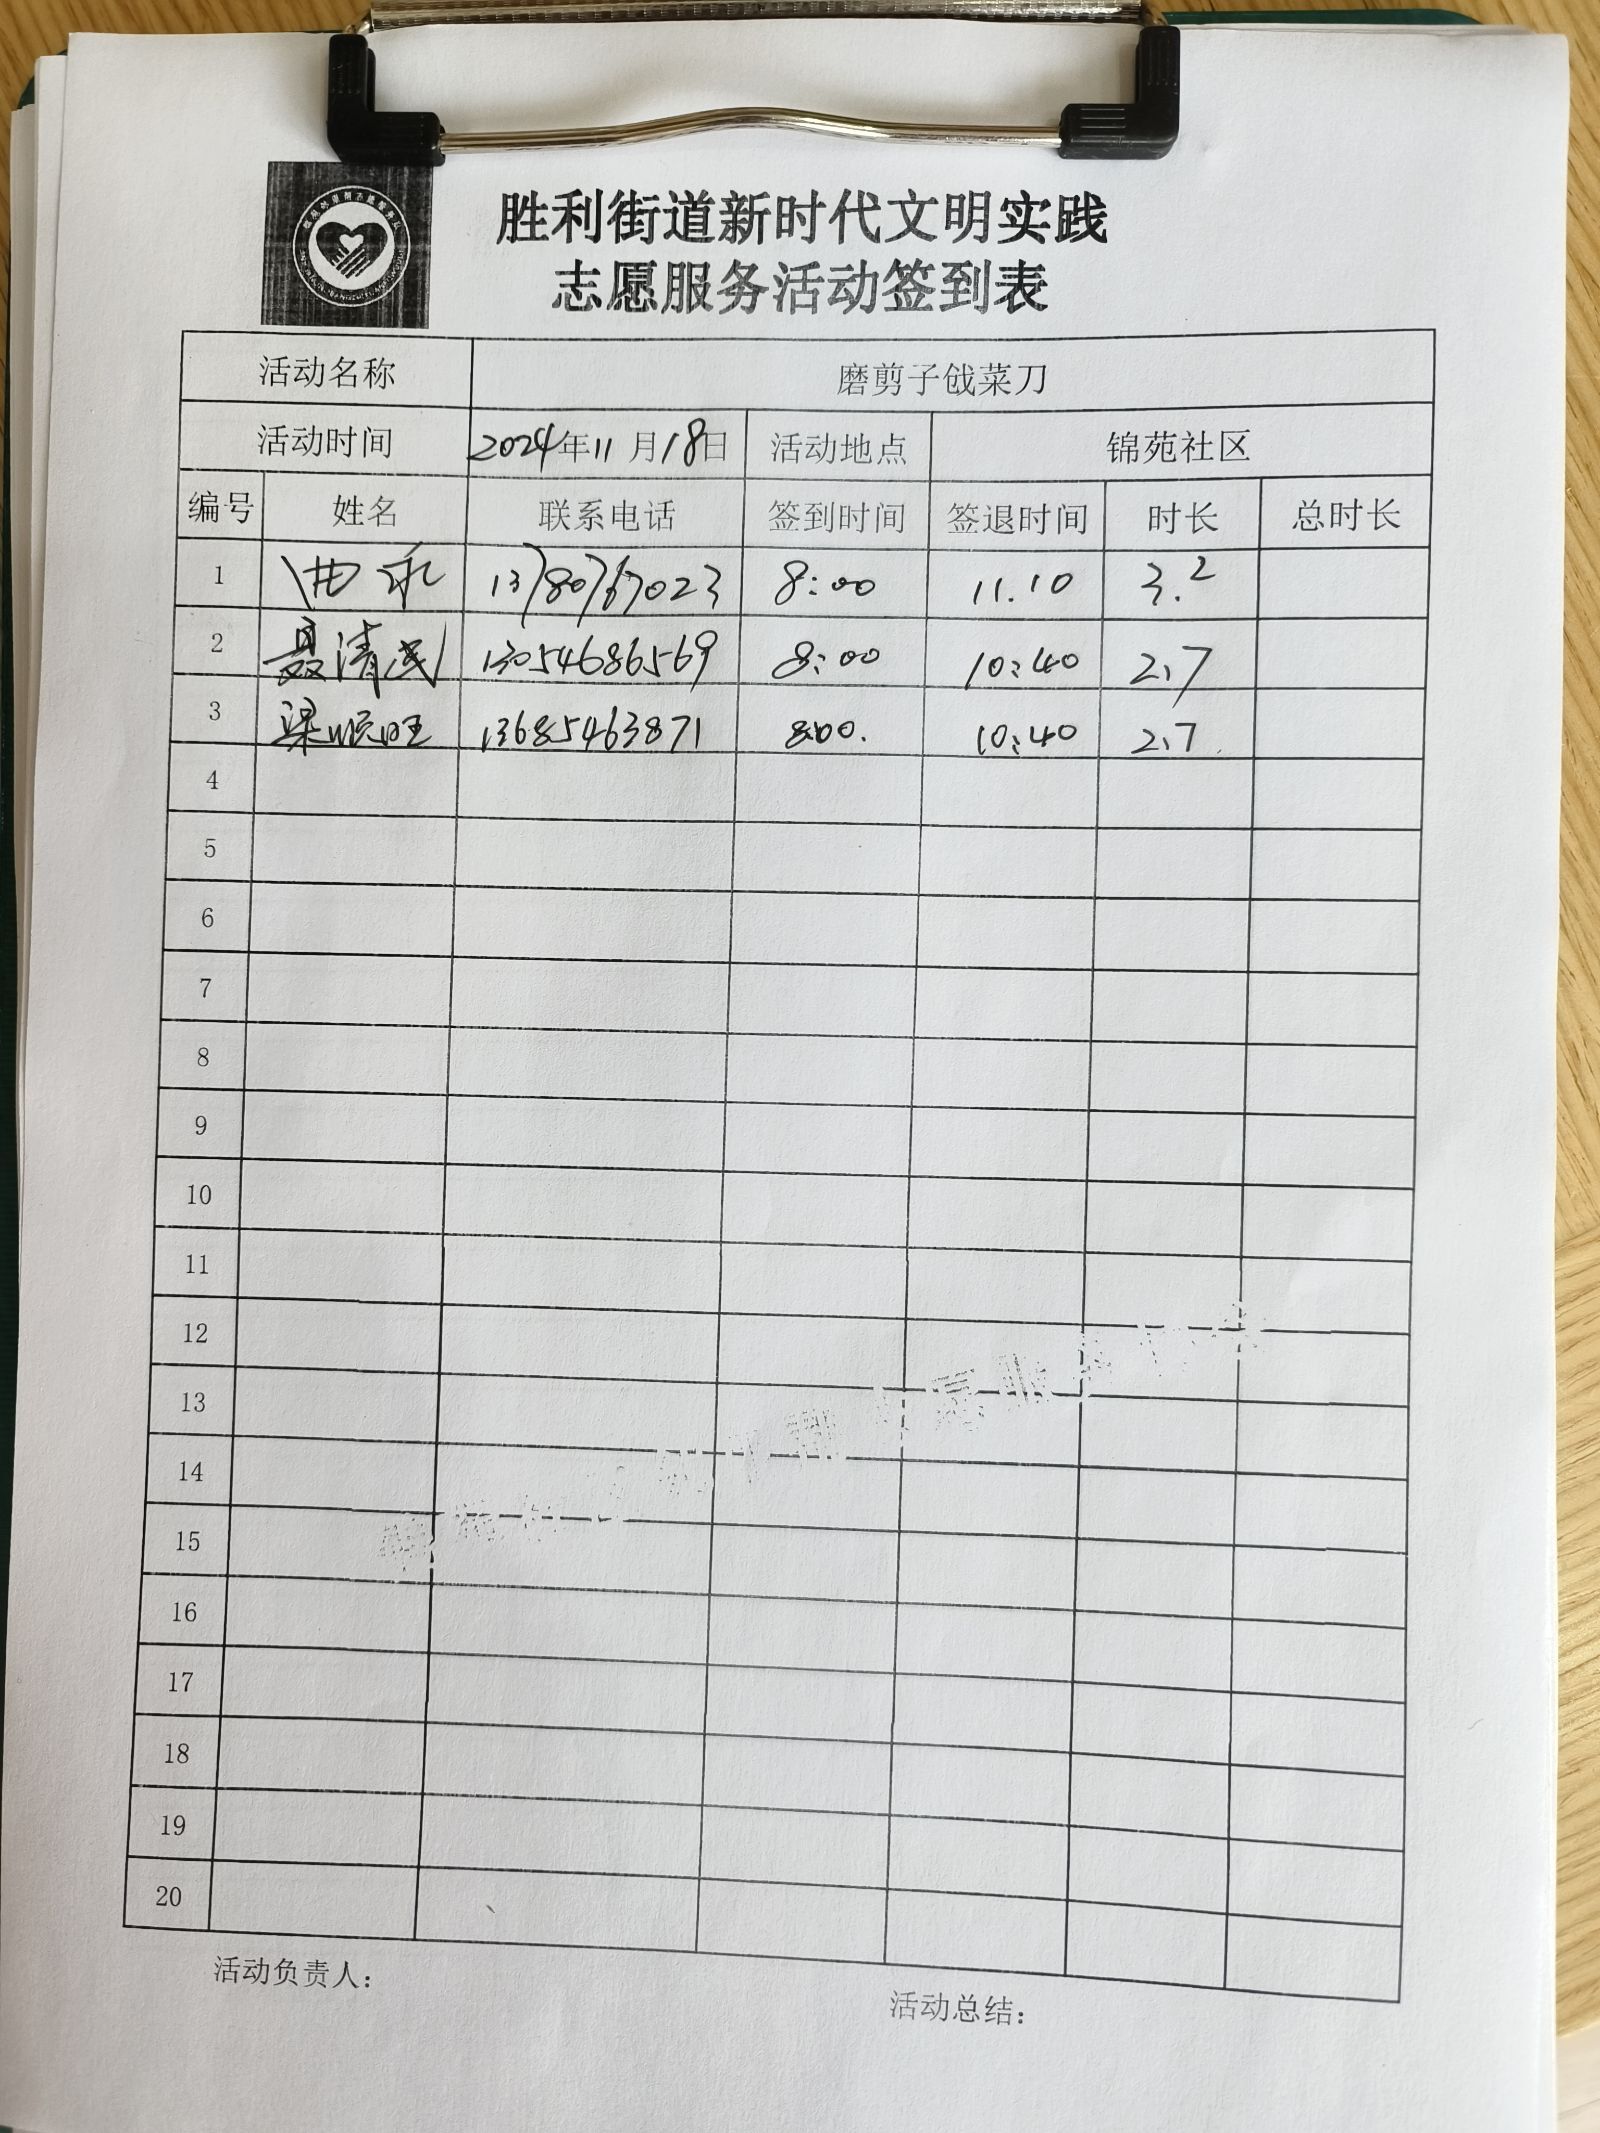 胜利街道新时代文明实践
志愿服务活动签到表
活动名称 磨剪子戗菜刀
活动时间 2024年11月18日 活动地点 锦苑社区
编号 姓名 联系电话 签到时间 签退时间 时长 总时长
1 曲永 13780767023 8:00 11.10 3.2
2 聂清民 13054686569 8:00 10:40 2.7
3 梁顺旺 13685463871 8:00. 10:40 2.7.
4
5
6
7
8
9
10
11
12
13
14
15
16
17
18
19
20
活动负责人:
活动总结: